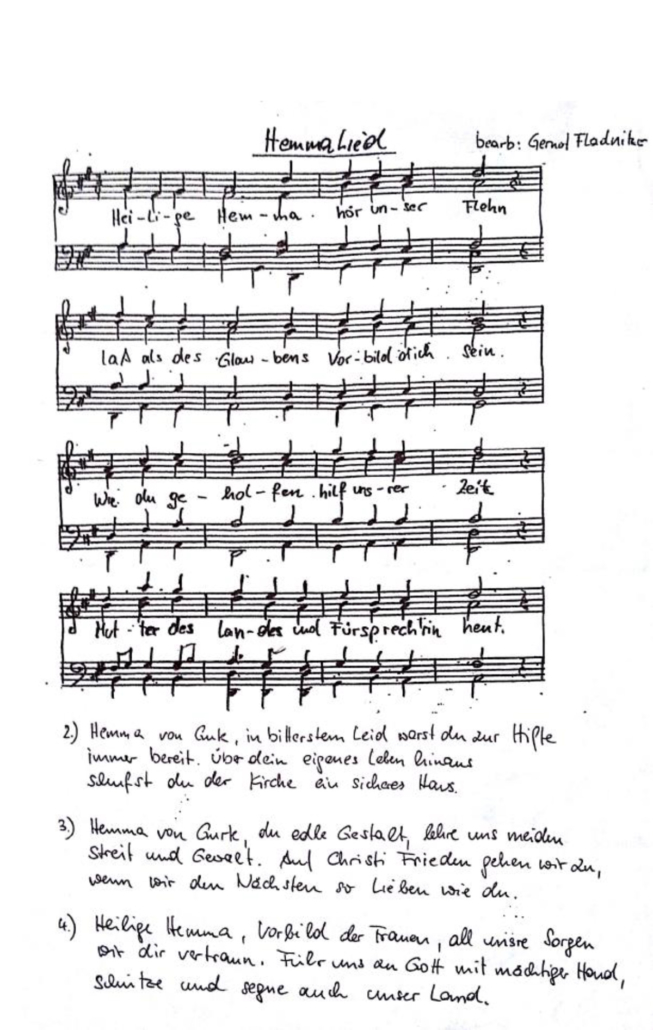 Hemma Lied
bearb: Gernot Fladnitzer
Hei-li-ge Hem-ma hör un-ser Flehn
laß als des Glau-bens Vor-bild dich sein.
Wie du ge-hol-fen hilf uns-rer Zeit
Mut-ter des Lan-des und Fürsprech'rin heut.
2.) Hemma von Gurk, in bitterstem Leid warst du zur Hilfe
immer bereit. Über dein eigenes Leben hinaus
schufst du der Kirche ein sicheres Haus.
3.) Hemma von Gurk, du edle Gestalt, lehre uns meiden
Streit und Gewalt. Auf Christi Frieden gehen wir zu,
wenn wir den Nächsten so lieben wie du.
4.) Heilige Hemma, Vorbild der Frauen, all unsre Sorgen
wir dir vertraun. Führ uns an Gott mit mächtiger Hand,
schütze und segne auch unser Land.